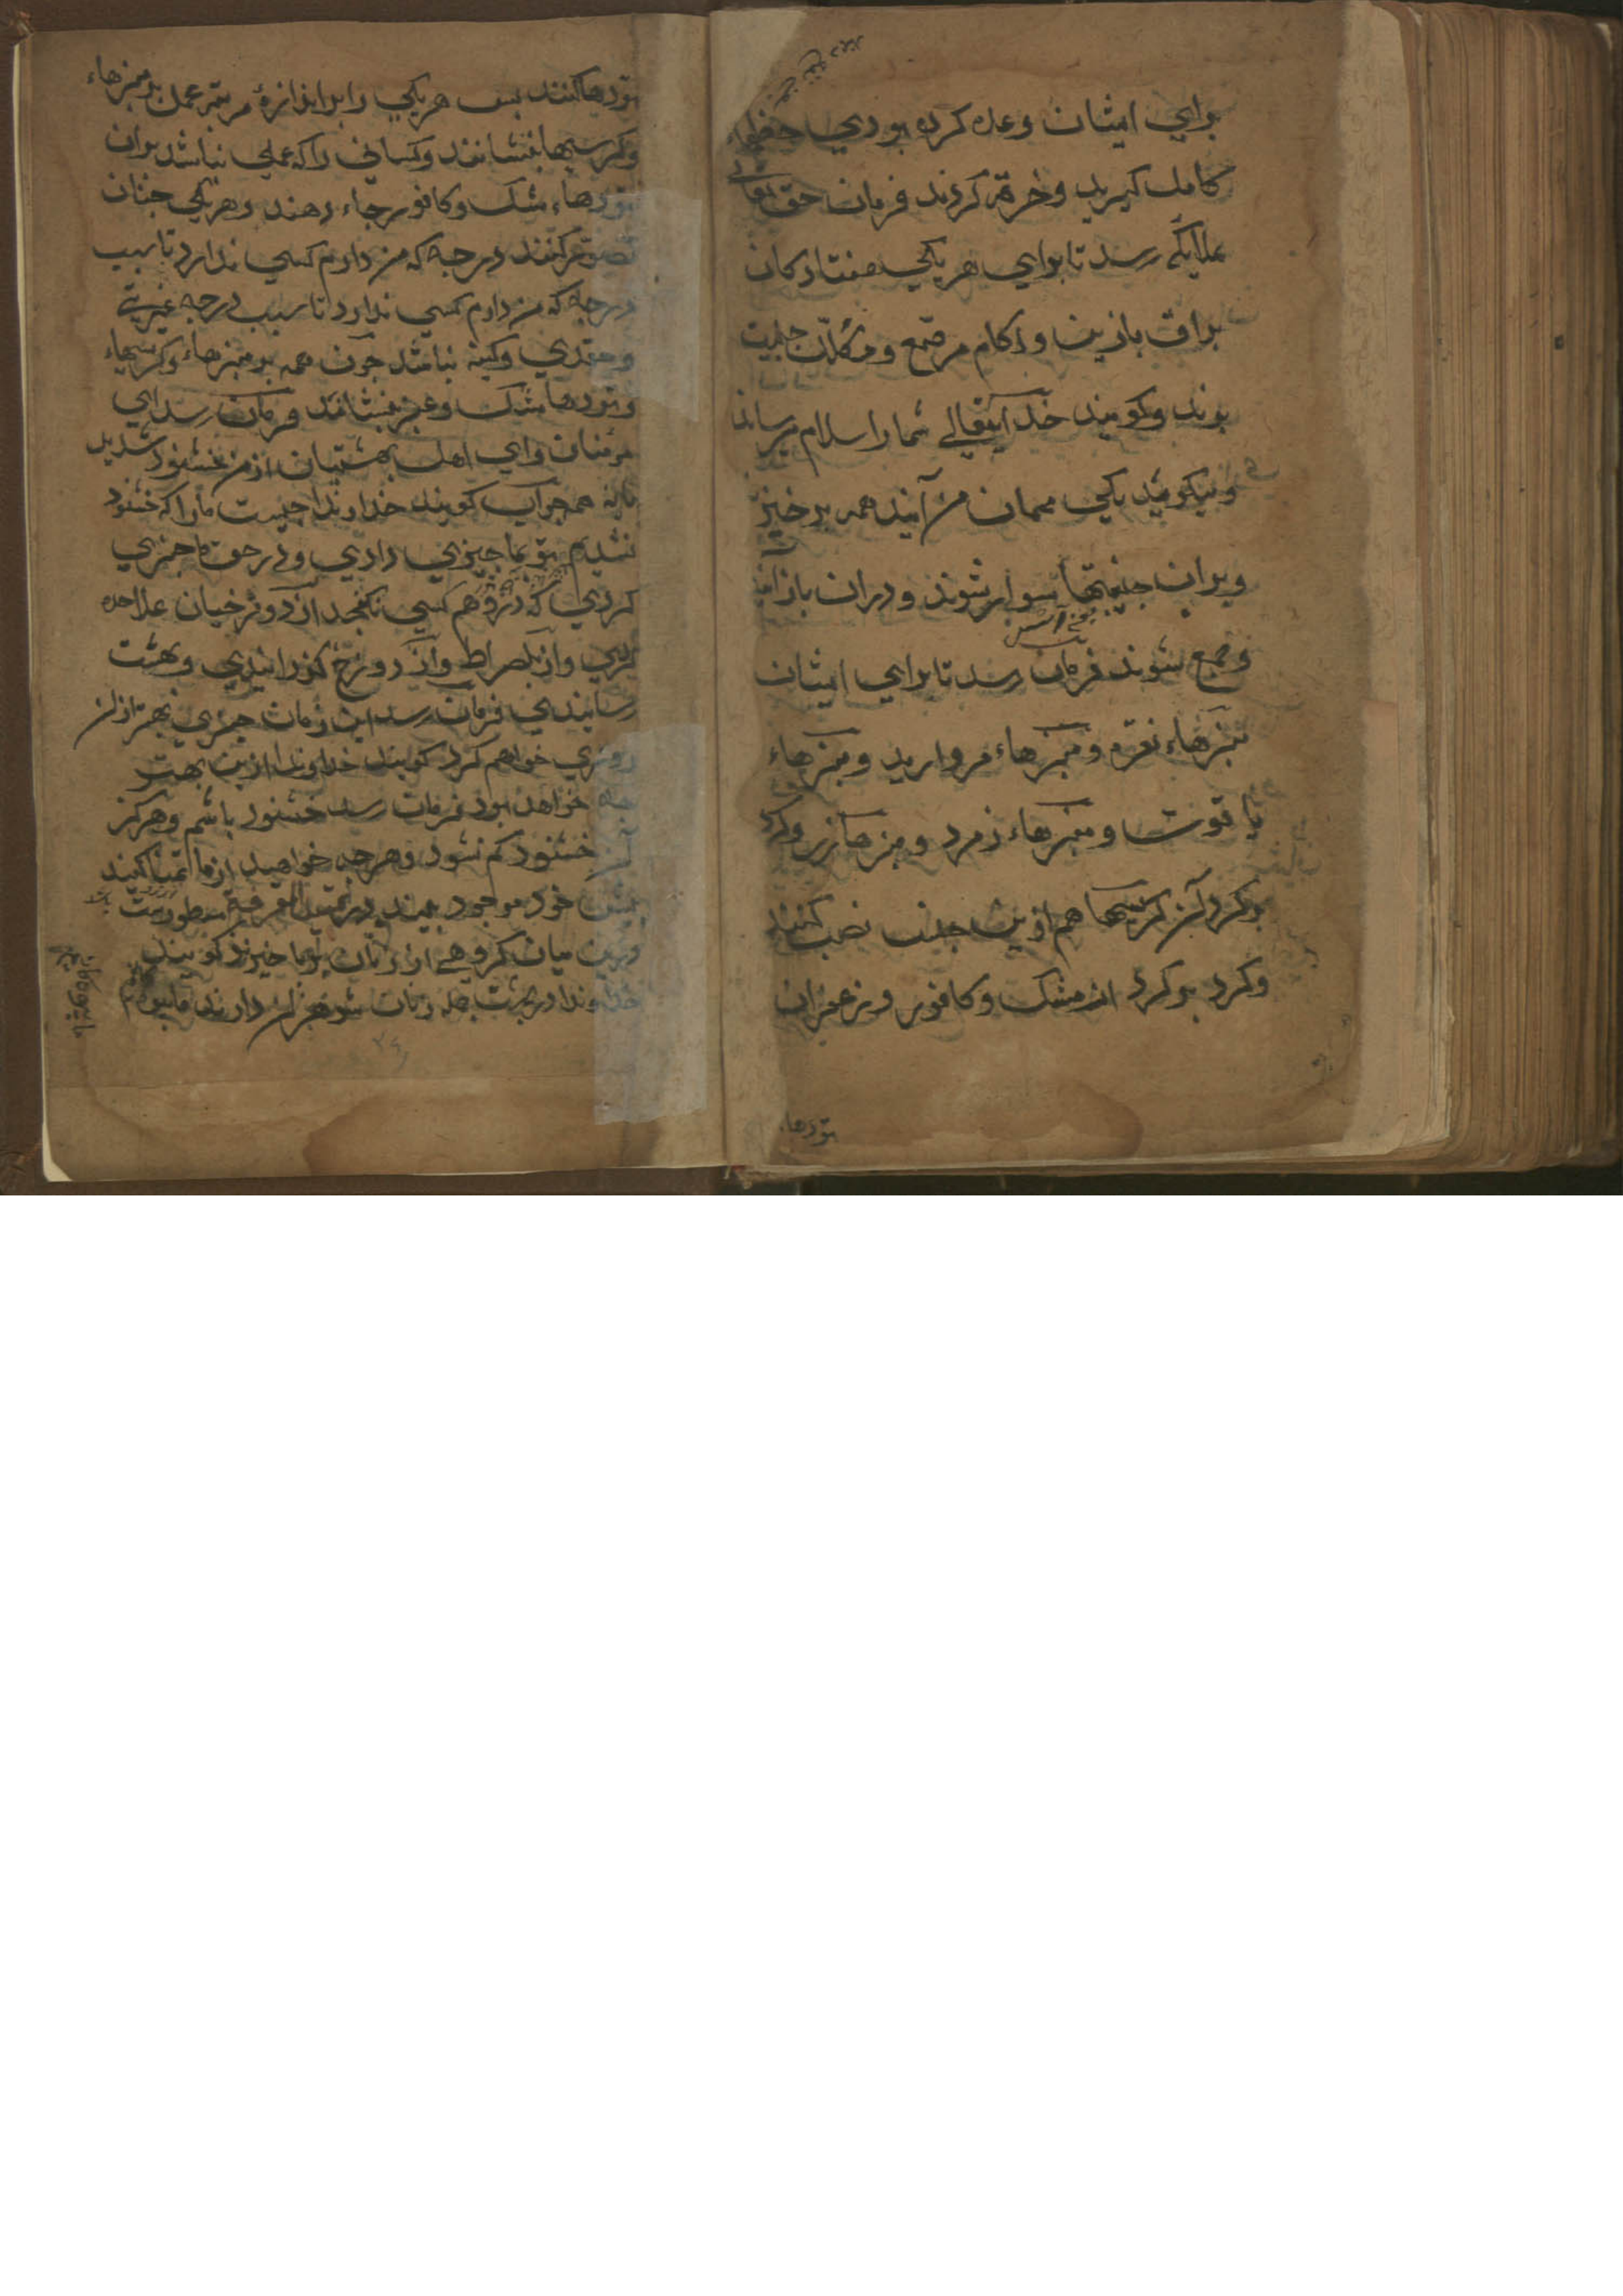 براي ایشان وعده کرده بودي حظهاء
کامل کیرید وخرم کردند فرمان حق تعالی
بملایکه رسد تا براي هر یکي هفتادکان
براق بازین و لکام مرصع ومکلل جنیبت
برند وکویند خدایتعالے شما را سلام میرساند
ومیکوید یکي مهمان من آیند همه برخیزند
وبران جنیبتها سوار شوند ودران بازار
وجمع شوند فرمان رسد تا براي ایشان
منبرهاء نقره ومنبرهاء مروارید ومنبرهاء
یاقوت ومنبرهاء زمرد ومنبرهاء زر وکرد
برکرد آن کرسیها هم ازین جنس نصب کنند
وکرد برکرد از مشک وکافور وزعفران
تودهاء
تودها کنند پس هر یکي را براندازهٔ مرتبهٔ عمل بر منبرهاء
وکرسیها بنشانند وکساني را که عملي نباشد بران
تودهاء مشک وکافور جاء دهند وهر یکي چنان
تصور کنند درجه که من دارم کسي ندارد تا سبب
درجه که من دارم کسي ندارد تا سبب درجه غیرتے
وحقدي وکینه نباشد چون همه بر منبرهاء وکرسیهاء
وتودها مشک وعنبر بنشانند فرمان رسد اي
مومنان واي اهل بهشتیان از من خشنود شدید
یا نه همه جواب کویند خداوندا چیست ما را که خشنود
نشدیم تو بما چیزي دادي ودر حق ما چیزي
کردي که در وهم کسي نکنجد از دوزخیان علاحده
کردي واز پلصراط واز دوزخ کذرانیدي وبهشت
رسانیدي فرمان رسد این زمان چیزي بهتر ازان
روزي خواهم کرد کویند خداوندا ازین بهتر
چه خواهد بود فرمان رسد خشنود باشم وهرکز
خشنود کم نشود وهر چه خواهید از ما تمنا کنید
پیش خود موجود بیند در تمهید المعرفة مسطورست
درین میان کروهے از زنان برپا خیزند کویند
خداوندا در بهشت همه زنان شوهران دارند ما بیوه‌ایم